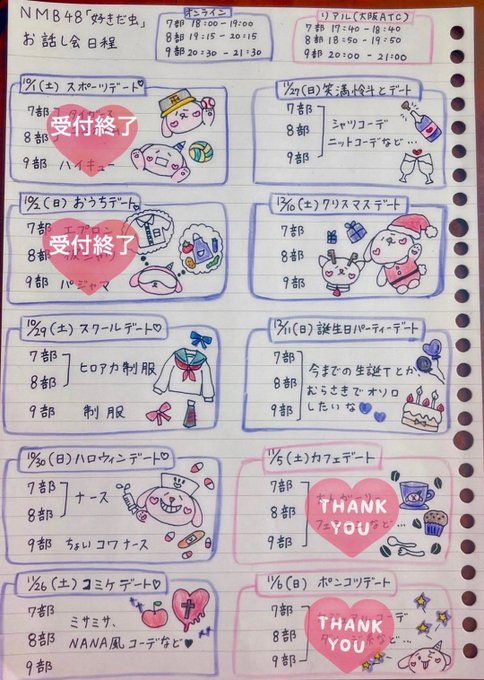 NMB48「好きだ虫」
お話し会日程
オンライン
7部 18:00-19:00
8部 19:15-20:15
9部 20:30-21:30
リアル(大阪ATC)
7部 17:40-18:40
8部 18:50-19:50
9部 20:00-21:00
10/1(土)スポーツデート♡
7部
8部
9部 ハイキュー
受付終了
10/2(日)おうちデート♡
7部 エプロン
8部
9部 パジャマ
受付終了
10/29(土)スクールデート♡
7部
8部
ヒロアカ制服
9部 制服
10/30(日)ハロウィンデート♡
7部
8部
ナース
9部 ちょいコワナース
11/26(土)コミケデート♡
7部
8部
9部
ミサミサ、
NANA風コーデなど♥
11/27(日)笑満怜斗とデート
7部
8部
9部
シャツコーデ
ニットコーデなど…
12/10(土)クリスマスデート
7部
8部
9部
12/11(日)誕生日パーティーデート
7部
8部
9部
今までの生誕Tとか、
むらさきでオソロ
したいな
11/5(土)カフェデート
7部
8部
9部
など…
THANK
YOU
11/6(日)ポンコツデート
7部
8部
9部
など…
THANK
YOU